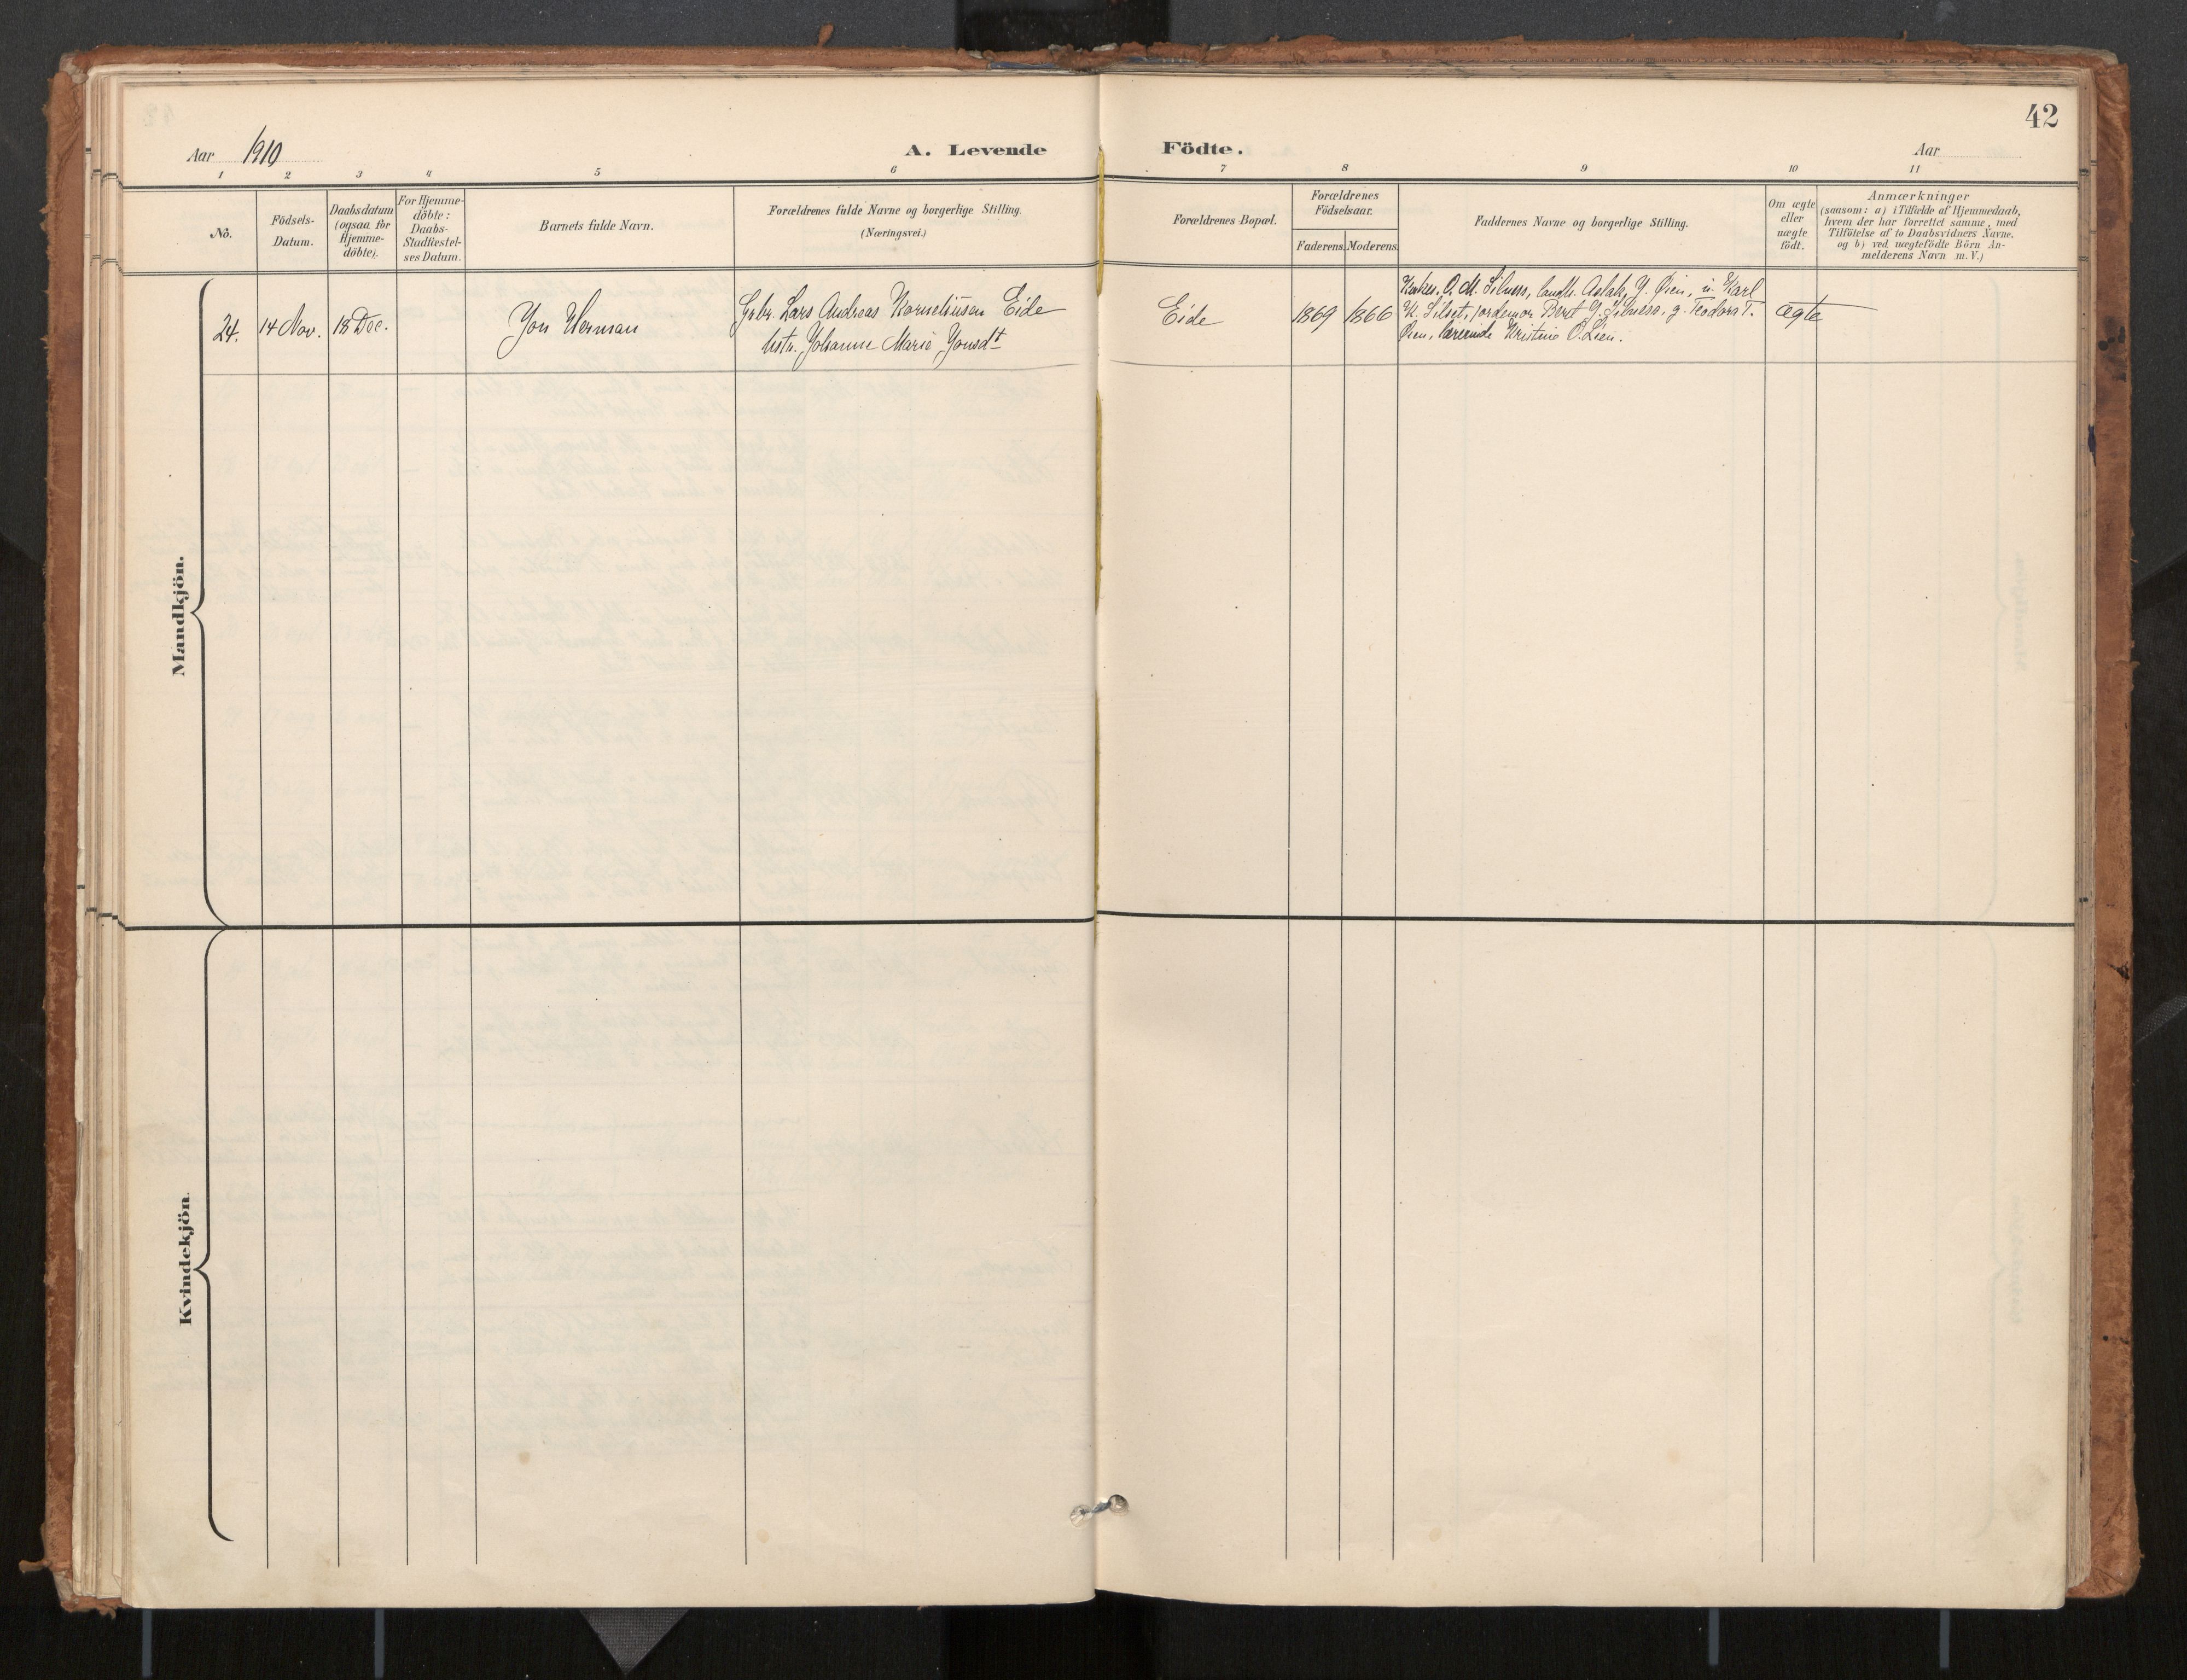 42
Aar 1910
A. Levende Födte.
Aar
1 2 3 4 5 6 7 8 9 10 11
No.
Födsels-
Datum.
Daabsdatum
(ogsaa for
Hjemme-
döbte).
For Hjemme-
döbte:
Daabs-
Stadfæstel-
ses Datum.
Barnets fulde Navn.
Forældrenes fulde Navne og borgerlige Stilling.
(Næringsvei.)
Forældrenes Bopæl.
Forældrenes
Födselsaar.
Faderens. Moderens.
Faddernes Navne og borgerlige Stilling.
Om ægte
eller
uægte
födt.
Anmærkninger
(saasom: a) i Tilfælde af Hjemmedaab,
hvem der har forrettet samme, med
Tilföielse af to Daabsvidners Navne.
og b) ved uægtefödte Börn An-
melderens Navn m. V.)
Mandkjön.
24. 14 Nov. 18 Dec.
Jon Herman
Grbr. Lars Andreas Korneliusen Eide
hstr. Johanne Marie Jonsdt
Eide
1869 1866
Kirkes. O. M. Silness, landh. Aslak J. Øien, u. Karl
K. Silset, jordemor Berit J. Silness, g. Teodora T.
Øien, lærerinde Kristine O. Lien.
ægte
Kvindekjön.